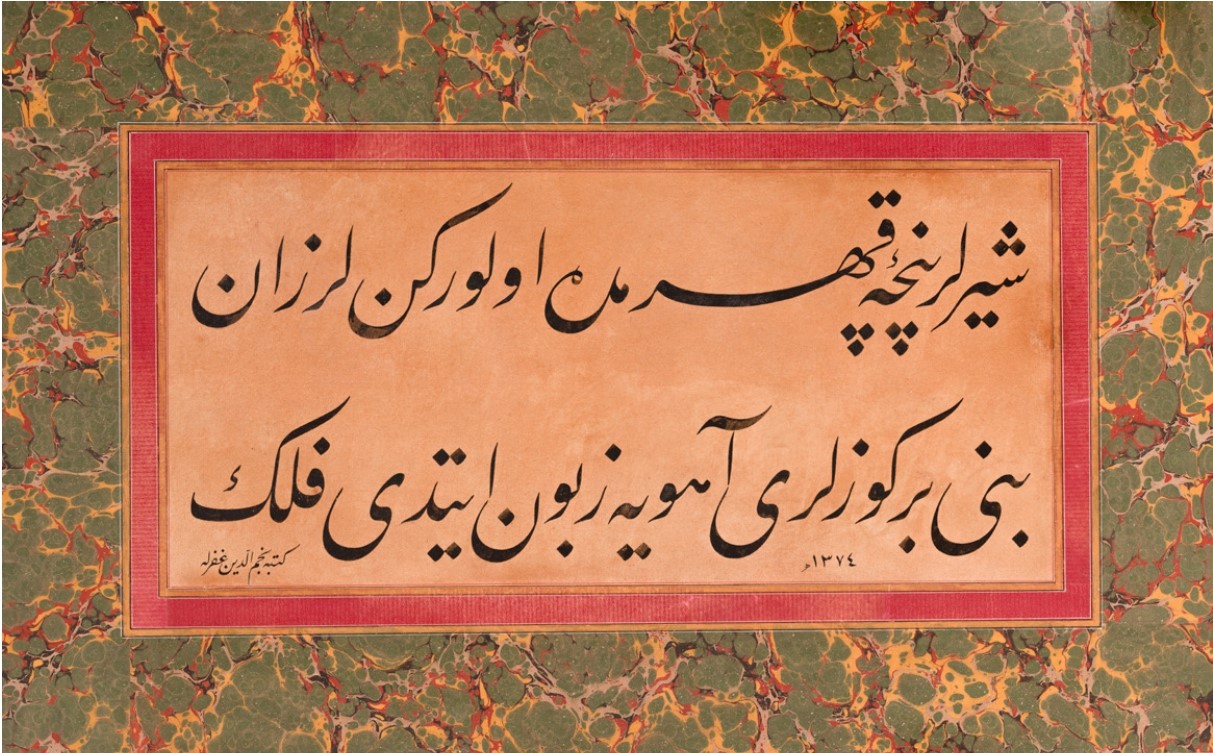 شیرلر پنچۀ قهرمدن اولوركن لرزان
بنی بر كوزلری آهویه زبون ایتدی فلك
١٣٧٤هـ
كتبه نجم الدین غفرله